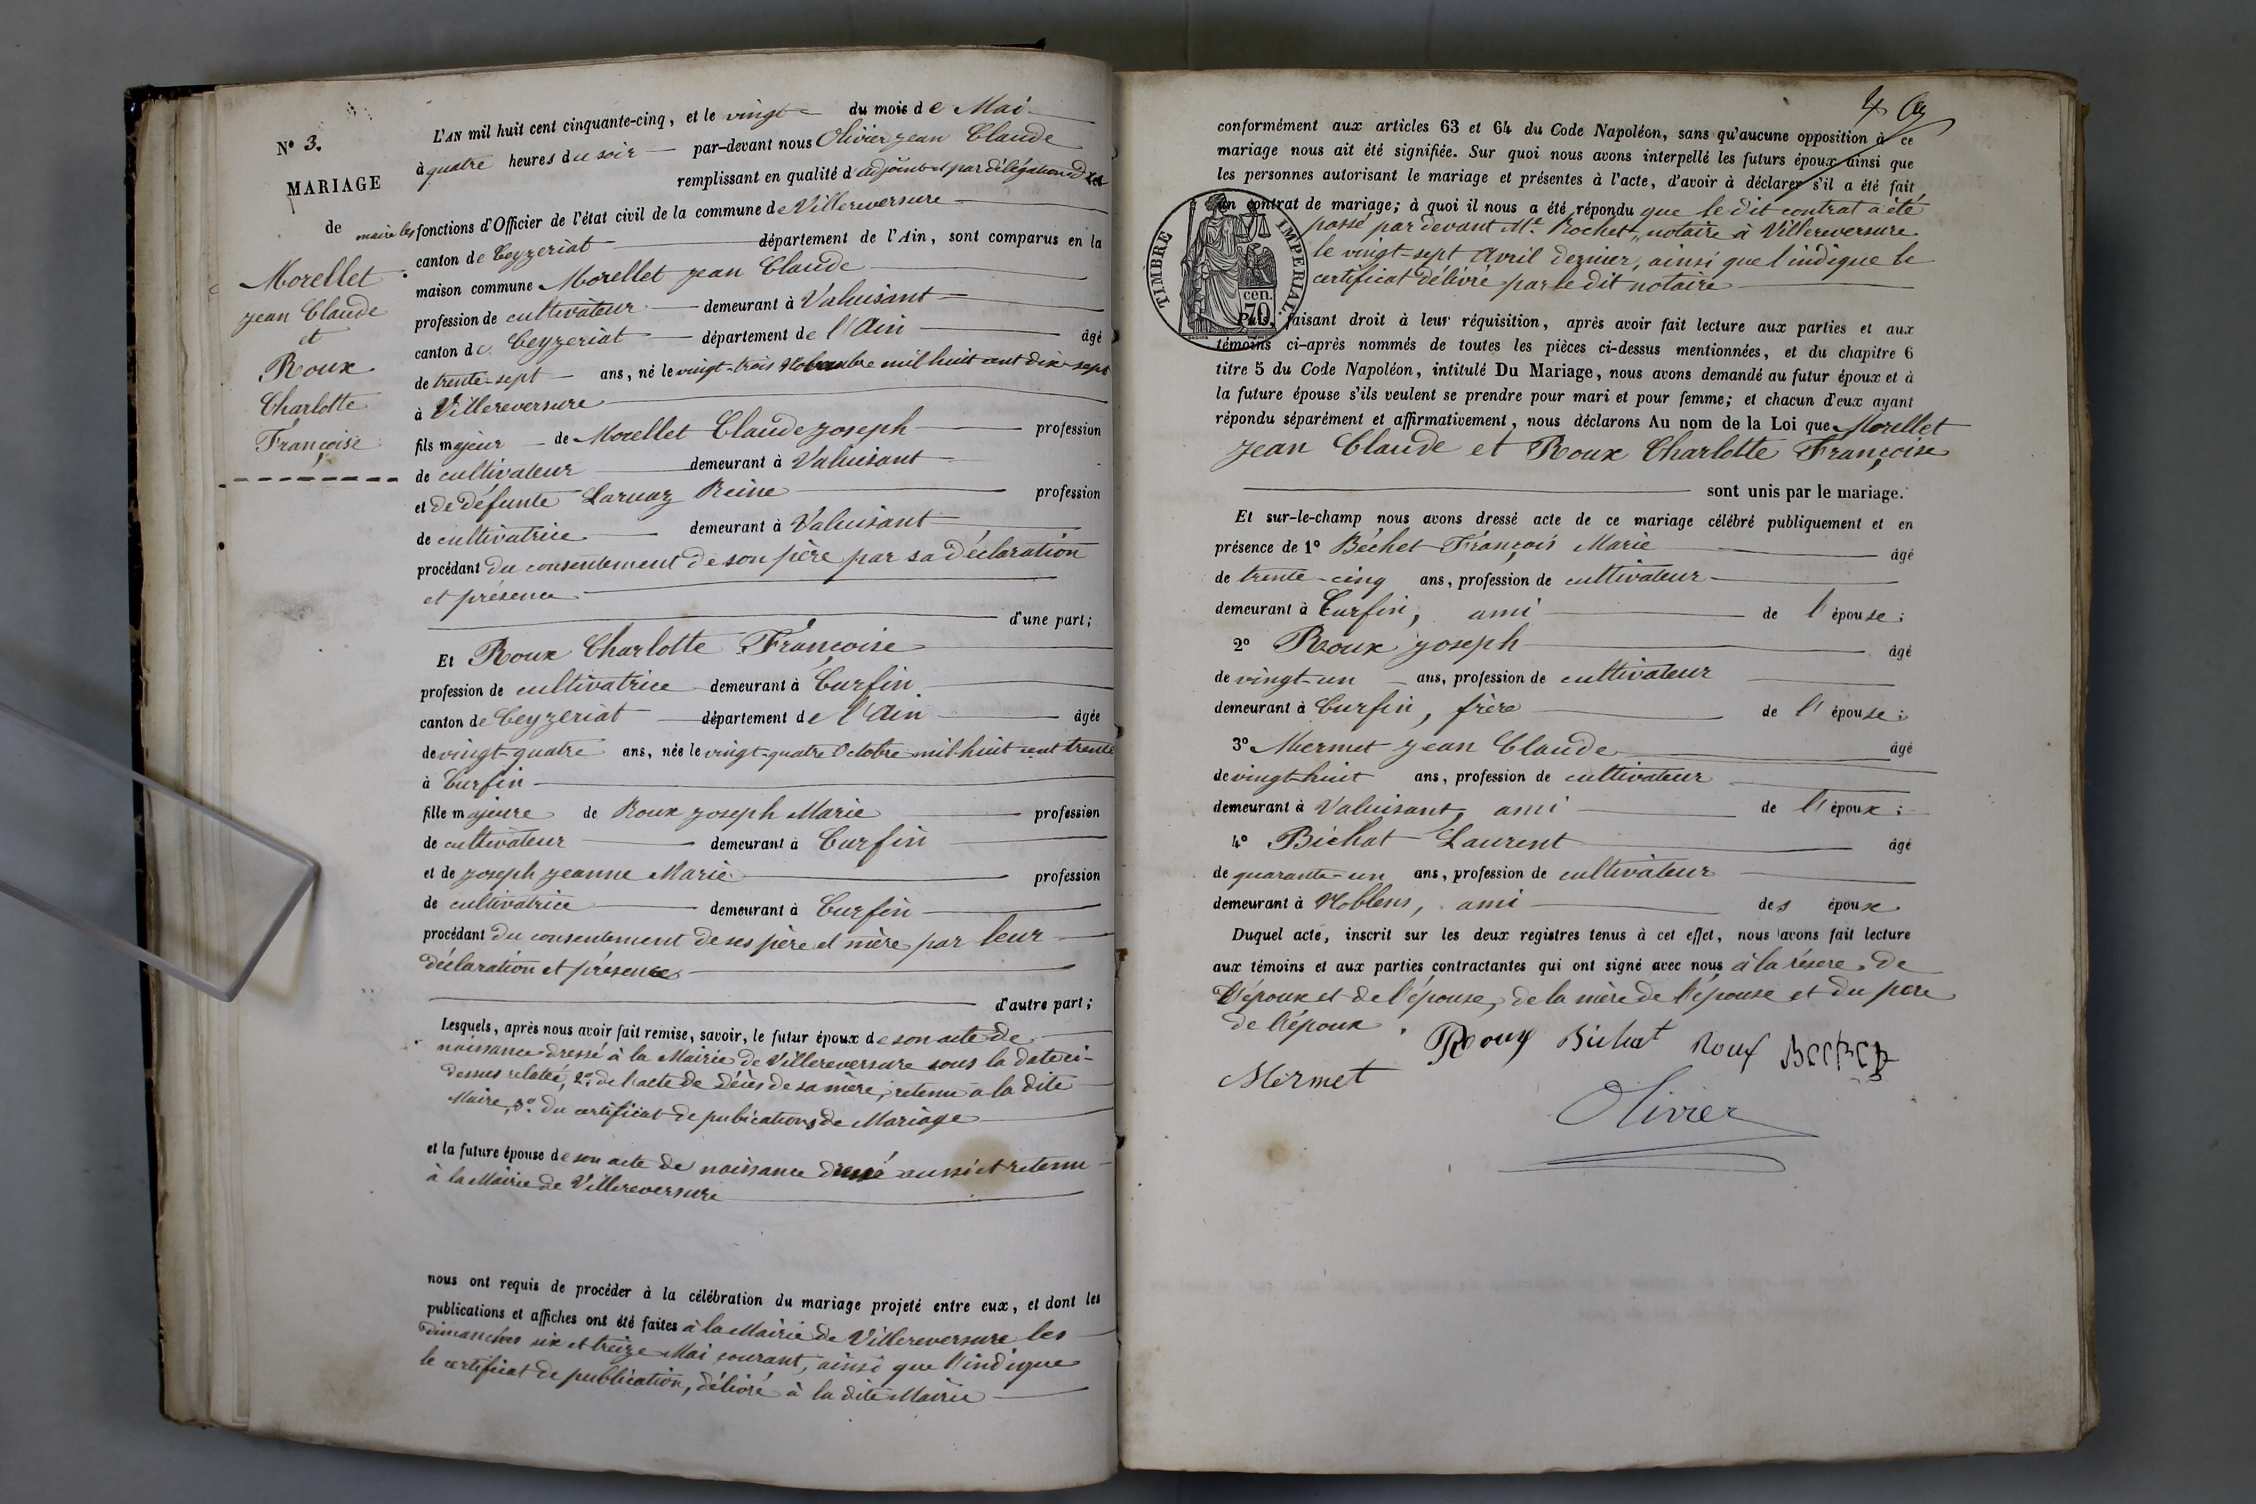 N° 3.
MARIAGE
de
Morellet
jean Claude
et
Roux
Charlotte
Françoise
L'AN mil huit cent cinquante-cinq, et le vingt du mois de Mai
à quatre heures du soir par-devant nous Olivier jean Claude
remplissant en qualité d'adjoint et par délégation du
maire les fonctions d'Officier de l'état civil de la commune de Villereversure
canton de Ceyzeriat département de l'Ain, sont comparus en la
maison commune Morellet jean Claude
profession de cultivateur demeurant à Valuisant
canton de Ceyzeriat département de l'Ain âgé
de trente-sept ans, né le vingt-trois Novembre mil huit cent dix-sept
à Villereversure
fils majeur de Morellet Claude joseph profession
de cultivateur demeurant à Valuisant
et de défunte Laruaz Reine profession
de cultivatrice demeurant à Valuisant
procédant du consentement de son père par sa déclaration
et présence
d'une part;
Et Roux Charlotte Françoise
profession de cultivatrice demeurant à Curfin
canton de Ceyzeriat département de l'Ain âgée
de vingt-quatre ans, née le vingt-quatre Octobre mil huit cent trente
à Curfin
fille majeure de Roux joseph Marie profession
de cultivateur demeurant à Curfin
et de joseph jeanne Marie profession
de cultivatrice demeurant à Curfin
procédant du consentement de ses père et mère par leur
déclaration et présence
d'autre part;
Lesquels, après nous avoir fait remise, savoir, le futur époux de son acte de
naissance dressé à la Mairie de Villereversure sous la date ci-
dessus relatée, 2° de l'acte de Décès de sa mère, retenu à la dite
Maire, 3° du certificat de publications de Mariage
et la future épouse de son acte de naissance dressé aussi et retenu
à la Mairie de Villereversure
nous ont requis de procéder à la célébration du mariage projeté entre eux, et dont les
publications et affiches ont été faites à la Mairie de Villereversure les
dimanches six et treize Mai courant, ainsi que l'indique
le certificat de publication, délivré à la dite Mairie
4
conformément aux articles 63 et 64 du Code Napoléon, sans qu'aucune opposition à ce
mariage nous ait été signifiée. Sur quoi nous avons interpellé les futurs époux ainsi que
les personnes autorisant le mariage et présentes à l'acte, d'avoir à déclarer s'il a été fait
un contrat de mariage; à quoi il nous a été répondu que le dit contrat a été
passé par devant Me. Rochet, notaire à Villereversure
le vingt-sept Avril dernier, ainsi que l'indique le
certificat délivré par le dit notaire
TIMBRE IMPÉRIAL.
cen.
70
Puis, faisant droit à leur réquisition, après avoir fait lecture aux parties et aux
témoins ci-après nommés de toutes les pièces ci-dessus mentionnées, et du chapitre 6
titre 5 du Code Napoléon, intitulé Du Mariage, nous avons demandé au futur époux et à
la future épouse s'ils veulent se prendre pour mari et pour femme; et chacun d'eux ayant
répondu séparément et affirmativement, nous déclarons Au nom de la Loi que Morellet
jean Claude et Roux Charlotte Françoise
sont unis par le mariage.
Et sur-le-champ nous avons dressé acte de ce mariage célébré publiquement et en
présence de 1° Béchet François Marie âgé
de trente-cinq ans, profession de cultivateur
demeurant à Curfin, ami de l'épouse;
2° Roux joseph âgé
de vingt-un ans, profession de cultivateur
demeurant à Curfin, frère de l'épouse;
3° Mermet jean Claude âgé
de vingt-huit ans, profession de cultivateur
demeurant à Valuisant, ami de l'époux;
4° Bichat Laurent âgé
de quarante-un ans, profession de cultivateur
demeurant à Noblens, ami des époux
Duquel acte, inscrit sur les deux registres tenus à cet effet, nous avons fait lecture
aux témoins et aux parties contractantes qui ont signé avec nous à la résere de
l'époux et de l'épouse, de la mère de l'épouse et du père
de l'époux.
Roux Bichat Roux
Mermet
Olivier